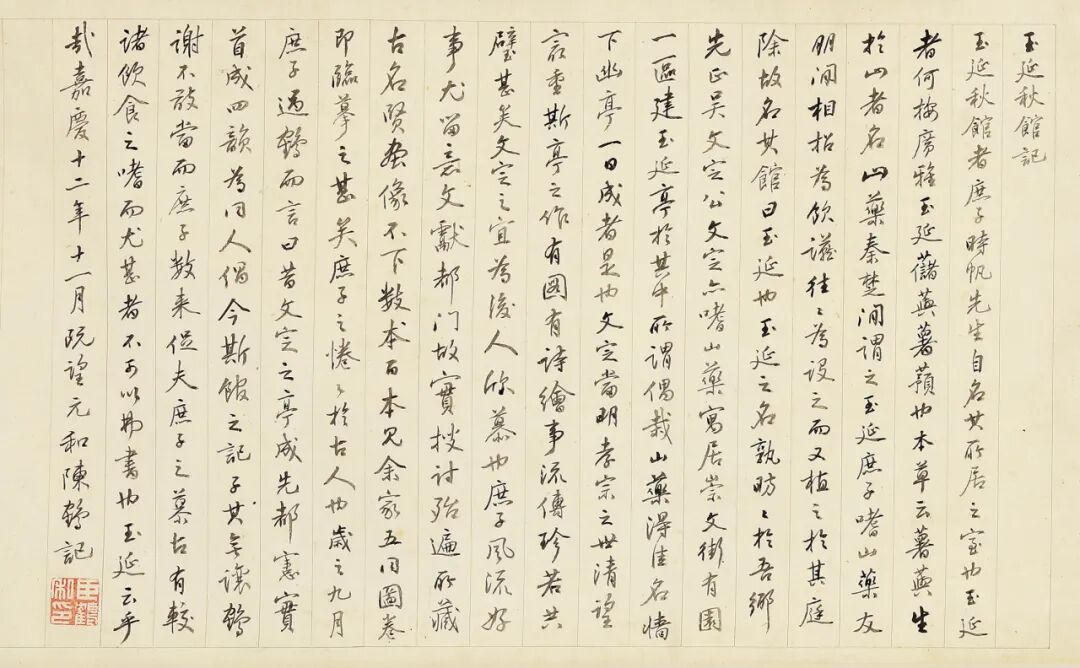 玉延秋館記
玉延秋館者庶子時帆先生自名其所居之室也玉延
者何按廣雅玉延藷薁署蕷也本草云薯蕷生
於山者名山藥秦楚間謂之玉延庶子嗜山藥友
朋間相招為飲讌往〻為設之而又植之於其庭
除故名其館曰玉延也玉延之名孰昉〻於吾鄉
先正吴文定公文定亦嗜山藥寓居崇文街有園
一區建玉延亭於其中所謂偶栽山藥得佳名墻
下幽亭一日成者是也文定當明孝宗之世清望
最重斯亭之作有圖有詩繪事流傳珍若共
璧甚矣文定之宜為後人欣慕也庶子風流好
事尤留意文獻都门故實搜讨殆遍所藏
古名賢畫像不下數本百本見余家五同圖卷
即臨摹之甚矣庶子之惓〻於古人也歲之九月
庶子過鶴而言曰昔文定之亭成先都憲實
首成四韻為同人倡今斯館之記子其無讓鶴
謝不敢當而庶子数来促夫庶子之慕古有較
諸飲食之嗜而尤甚者不可以弗書也玉延云乎
哉嘉慶十二年十一月既望元和陳鶴記